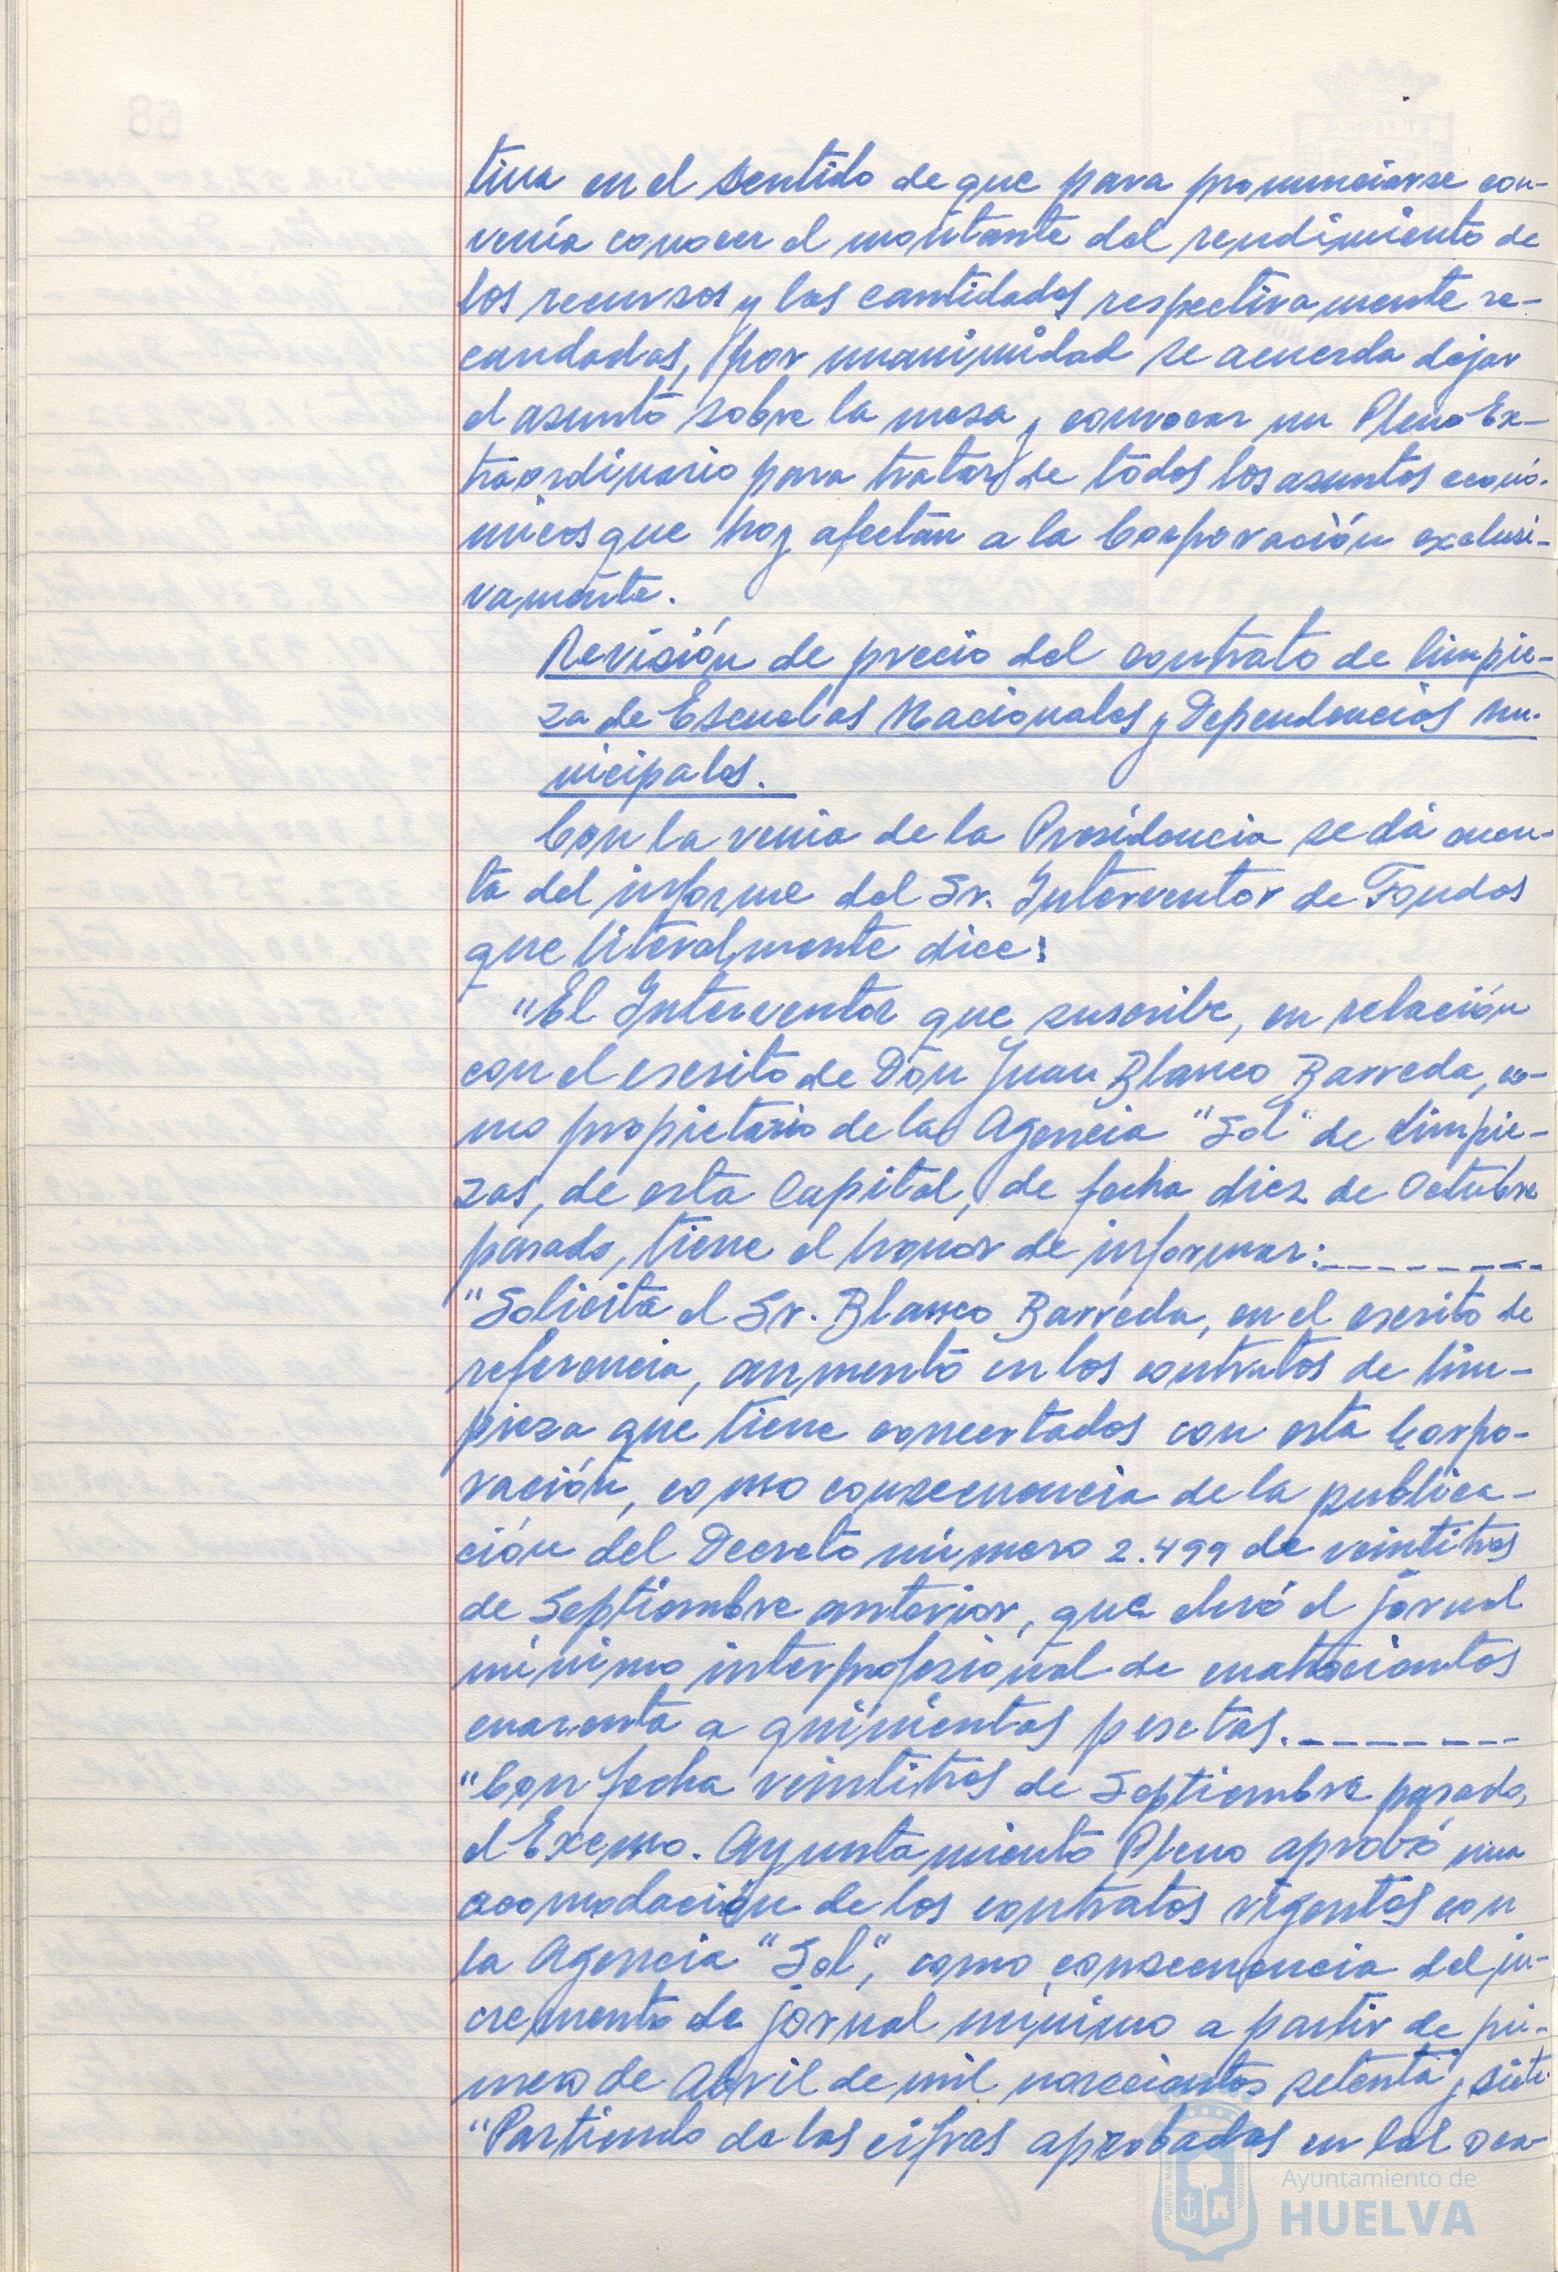 tiva en el sentido de que para pronunciarse con-
venía conocer el montante del rendimiento de
los recursos y las cantidades respectivamente re-
caudadas, por unanimidad se acuerda dejar
el asunto sobre la mesa y convocar un Pleno Ex-
traordinario para tratar de todos los asuntos econó-
micos que hoy afectan a la Corporación exclusi-
vamente.
Revisión de precio del contrato de limpie-
za de Escuelas Nacionales y Dependencias Mu-
nicipales.
Con la venia de la Presidencia se dá cuen-
ta del informe del Sr. Interventor de Fondos
que literalmente dice:
"El Interventor que suscribe, en relación
con el escrito de Don Juan Blanco Barreda, co-
mo propietario de la Agencia "Sol" de Limpie-
zas, de esta Capital, de fecha diez de Octubre
pasado, tiene el honor de informar:
"Solicita el Sr. Blanco Barreda, en el escrito de
referencia, aumento en los contratos de lim-
pieza que tiene concertados con esta Corpo-
ración, como consecuencia de la publica-
ción del Decreto número 2.499 de veintitres
de Septiembre anterior, que elevó el jornal
mínimo interprofesional de cuatrocientas
cuarenta a quinientas pesetas.
"Con fecha veintitres de Septiembre pasado,
el Excmo. Ayuntamiento Pleno aprobó una
acomodación de los contratos vigentes con
la Agencia "Sol", como consecuencia del in-
cremento de jornal mínimo a partir de pri-
mero de Abril de mil novecientos setenta y siete.
"Partiendo de las cifras aprobadas en las oca-
Ayuntamiento de
HUELVA